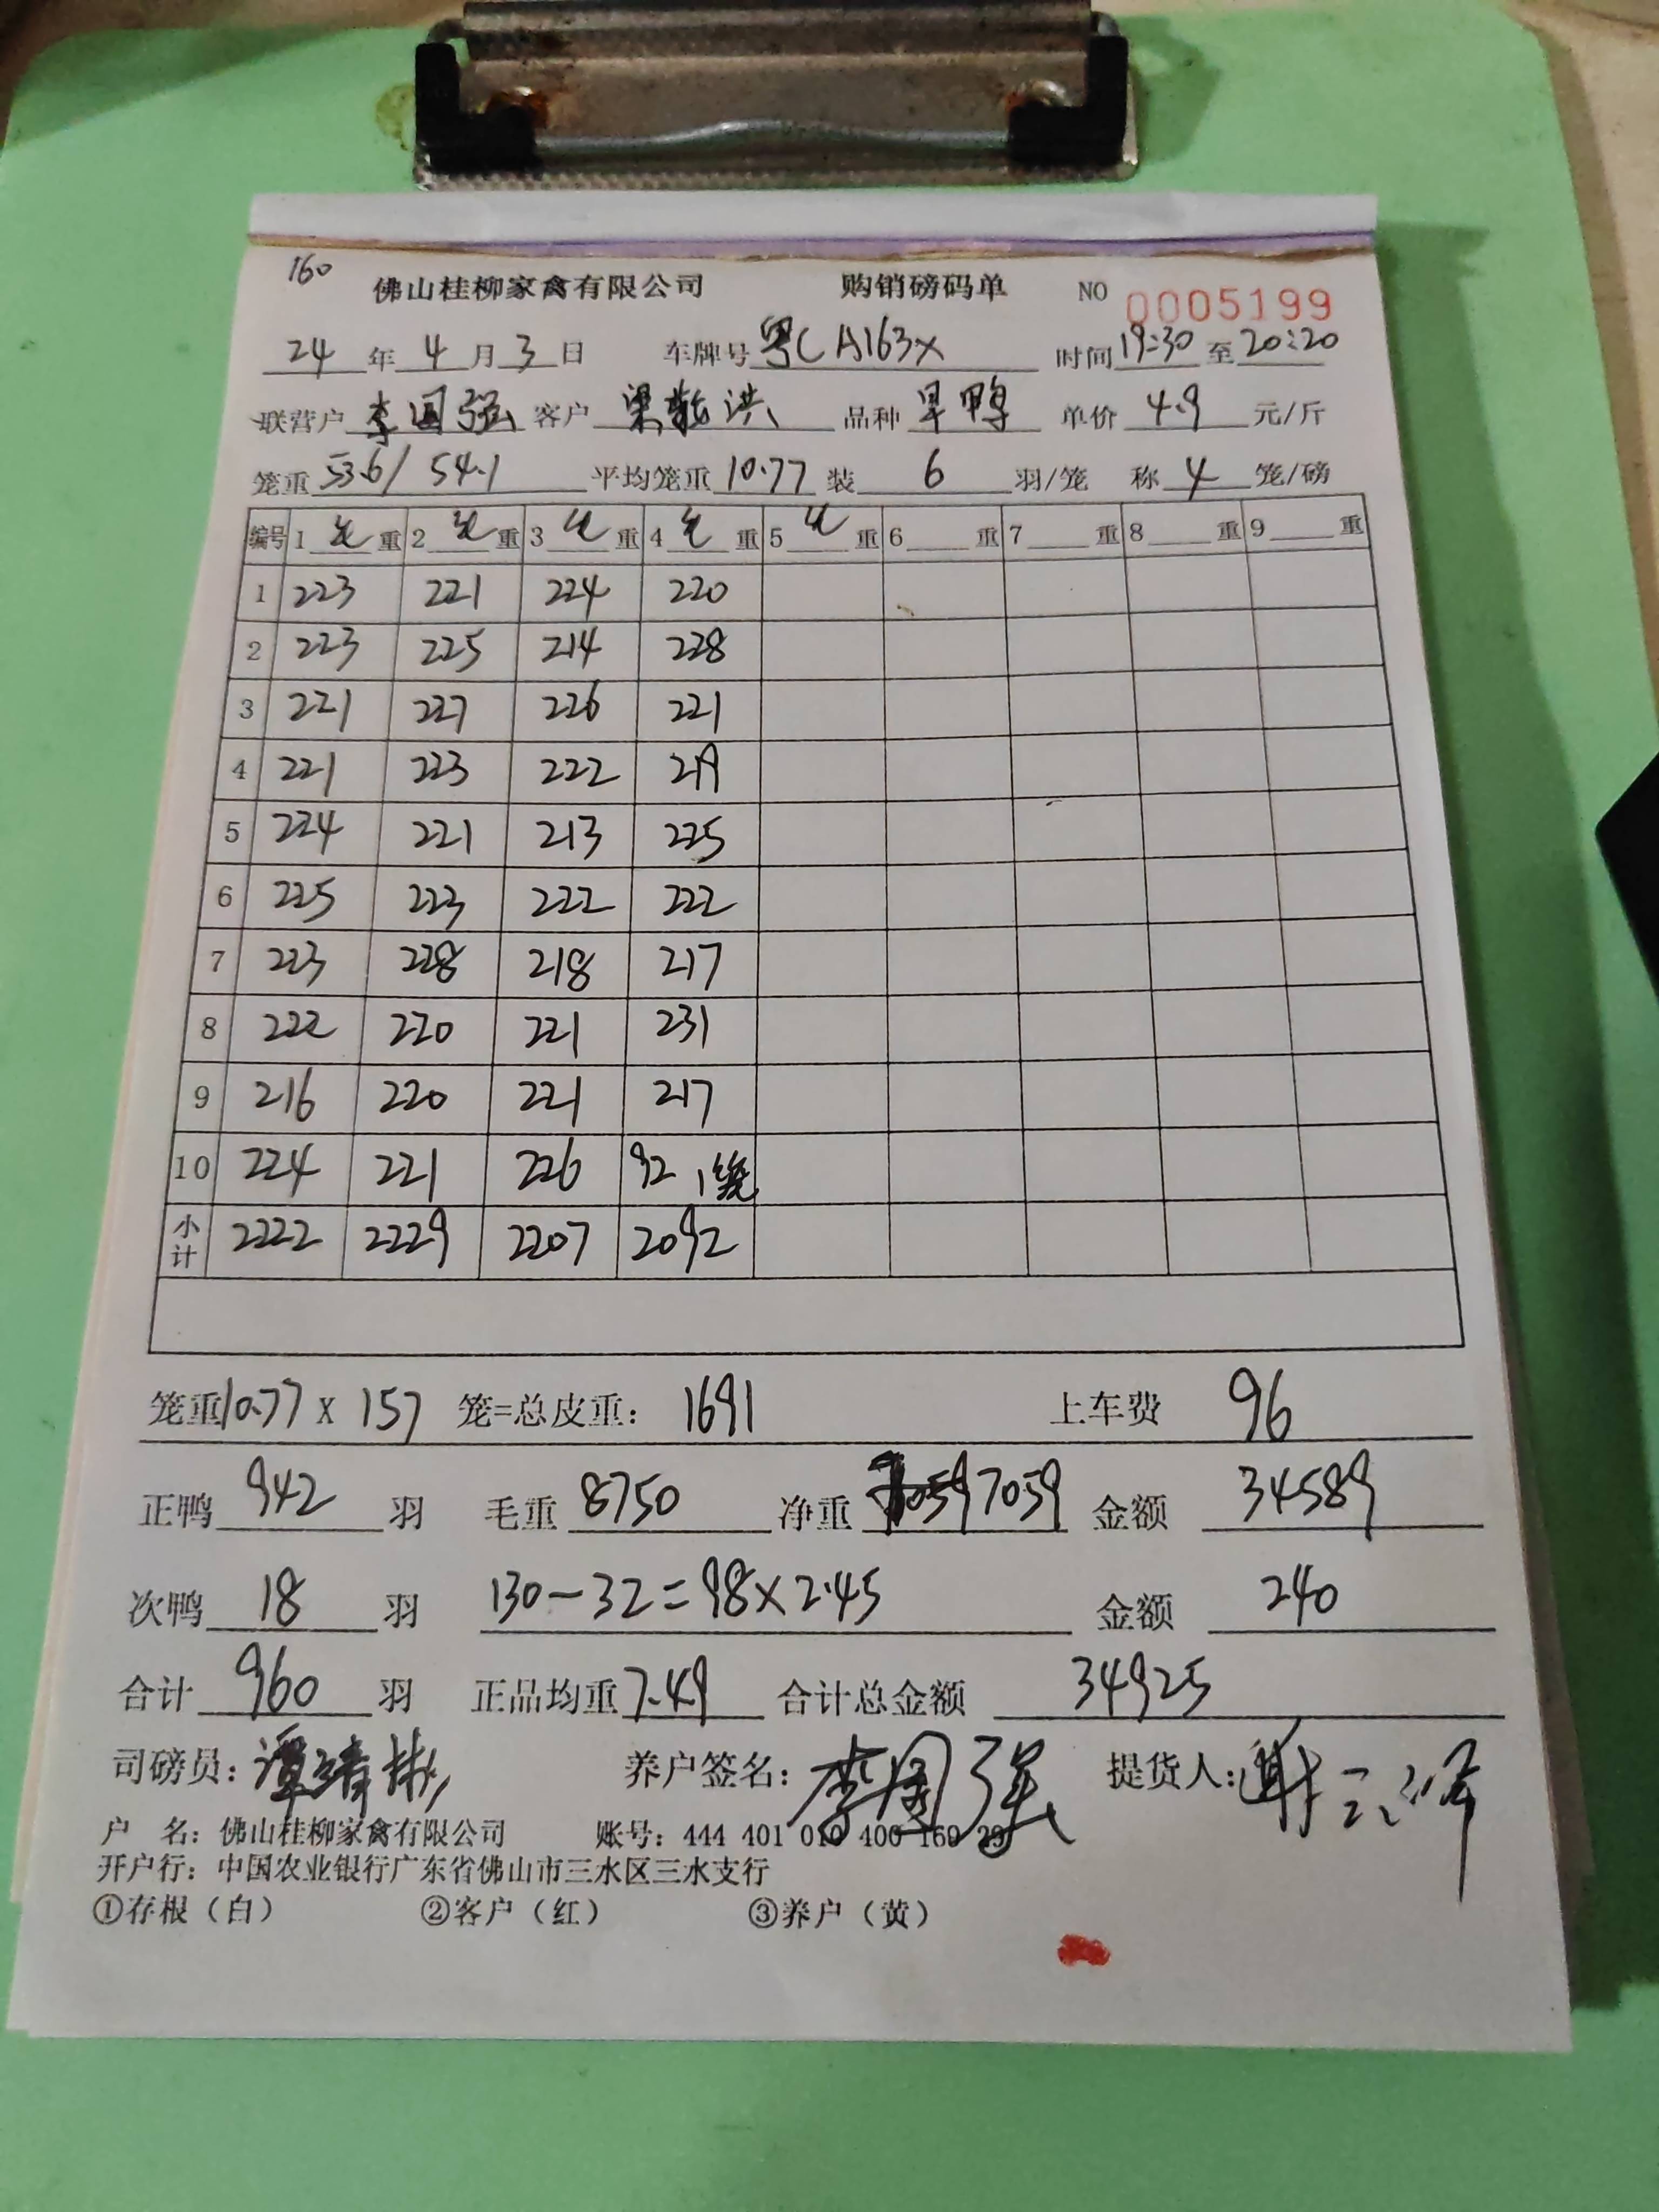 160
佛山桂柳家禽有限公司 购销磅码单 NO 0005199
24 年 4 月 3 日 车牌号 粤CA163X 时间 19:30 至 20:20
联营户 李国强 客户 梁乾洪 品种 旱鸭 单价 4.9 元/斤
笼重 53.6/ 54.1 平均笼重 10.77 装 6 羽/笼 称 4 笼/磅
编号 1 毛 重 2 毛 重 3 毛 重 4 毛 重 5 毛 重 6 重 7 重 8 重 9 重
1 223 221 224 220
2 223 225 214 228
3 221 227 226 221
4 221 223 222 219
5 224 221 213 225
6 225 223 222 222
7 223 228 218 217
8 222 220 221 231
9 216 220 221 217
10 224 221 226 92 1笼
小计 2222 2229 2207 2092
笼重 10.77 X 157 笼=总皮重: 1691 上车费 96
正鸭 942 羽 毛重 8750 净重 7059 金额 34589
次鸭 18 羽 130-32=98×2.45 金额 240
合计 960 羽 正品均重 7.49 合计总金额 34925
司磅员: 谭靖彬 养户签名: 李国强 提货人: 谢
户 名: 佛山桂柳家禽有限公司 账号: 444 401 010 400 169 29
开户行: 中国农业银行广东省佛山市三水区三水支行
①存根（白） ②客户（红） ③养户（黄）